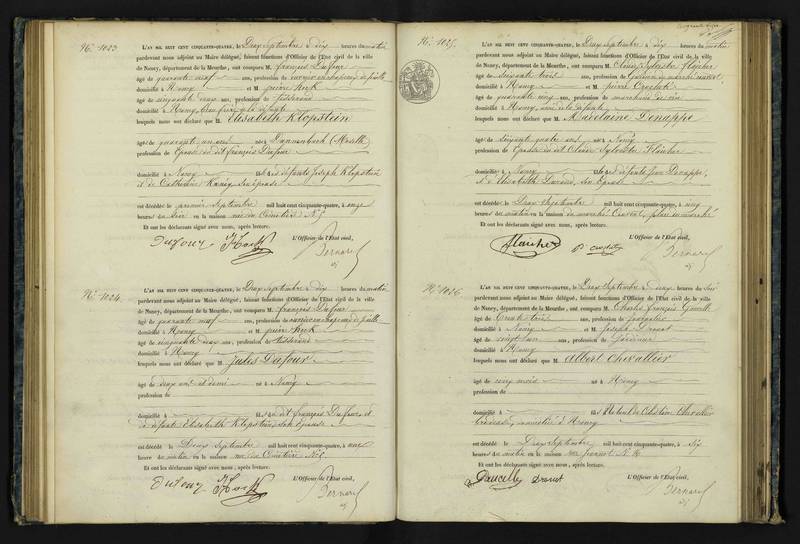 N.o 1023
L'AN MIL HUIT CENT CINQUANTE-QUATRE, le Deux Septembre à dix heures du matin
pardevant nous adjoint au Maire délégué, faisant fonctions d'Officier de l'Etat civil de la ville
de Nancy, département de la Meurthe, ont comparu M. François Dufour
âgé de quarante neuf ans, profession de ouvrier en chapeaux de paille
domicilié à Nancy et M. pierre
âgé de cinquante deux ans, profession de tisserand
domicilié à Nancy
lesquels nous ont déclaré que M. Elisabeth Klopstein
âgé de quarante un ans né à Dannenbach (Moselle)
profession de Epouse du dit françois Dufour
domicilié à Nancy fille de défunts Joseph Klopstein
et de Catherine son épouse
est décédé le premier Septembre mil huit cent cinquante-quatre, à onze
heures du soir en la maison rue du Cimetière N.o
Et ont les déclarants signé avec nous, après lecture.
L'Officier de l'Etat civil,
Dufour
Bernard
N.o 1024
L'AN MIL HUIT CENT CINQUANTE-QUATRE, le Deux Septembre à dix heures du matin
pardevant nous adjoint au Maire délégué, faisant fonctions d'Officier de l'Etat civil de la ville
de Nancy, département de la Meurthe, ont comparu M. françois Dufour
âgé de quarante neuf ans, profession de ouvrier en chapeaux de paille
domicilié à Nancy et M. pierre
âgé de cinquante deux ans, profession de tisserand
domicilié à Nancy
lesquels nous ont déclaré que M. Jules Dufour
âgé de deux ans et demi né à Nancy
profession de
domicilié à fils du dit françois Dufour et
de défunte Elisabeth Klopstein, son épouse
est décédé le Deux Septembre mil huit cent cinquante-quatre, à une
heure du matin en la maison rue du Cimetière N.o
Et ont les déclarants signé avec nous, après lecture.
L'Officier de l'Etat civil,
Dufour
Bernard
N.o 1025
L'AN MIL HUIT CENT CINQUANTE-QUATRE, le Deux Septembre à dix heures du matin
pardevant nous adjoint au Maire délégué, faisant fonctions d'Officier de l'Etat civil de la ville
de Nancy, département de la Meurthe, ont comparu M. Sylvestre
âgé de soixante trois ans, profession de
domicilié à Nancy et M. pierre
âgé de quarante cinq ans, profession de marchand de vin
domicilié à Nancy
lesquels nous ont déclaré que M. Madelaine Denappe
âgé de soixante quatre ans né à Nancy
profession de Epouse du dit Sylvestre
domicilié à Nancy fille de défunts Jean Denappe,
et d'Elisabeth son Epouse
est décédé le Deux Septembre mil huit cent cinquante-quatre, à cinq
heures du matin en la maison du marché Couvert, place du marché
Et ont les déclarants signé avec nous, après lecture.
L'Officier de l'Etat civil,
Bernard
N.o 1026
L'AN MIL HUIT CENT CINQUANTE-QUATRE, le Deux Septembre à deux heures du soir
pardevant nous adjoint au Maire délégué, faisant fonctions d'Officier de l'Etat civil de la ville
de Nancy, département de la Meurthe, ont comparu M. Charles françois
âgé de trente trois ans, profession de
domicilié à Nancy et M. Joseph Drouot
âgé de vingt un ans, profession de
domicilié à Nancy
lesquels nous ont déclaré que M. Albert Chevallier
âgé de cinq mois né à Nancy
profession de
domicilié à fils de Célestine Chevallier
brodeuse, domiciliée à Nancy
est décédé le Deux Septembre mil huit cent cinquante-quatre, à six
heures du matin en la maison rue N.o
Et ont les déclarants signé avec nous, après lecture.
L'Officier de l'Etat civil,
Drouot
Bernard